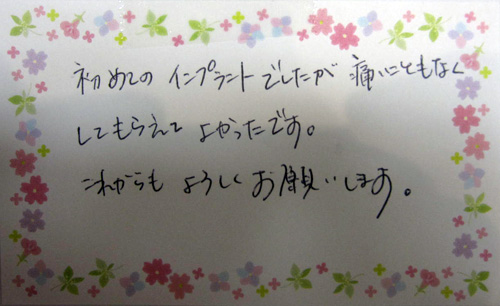 初めてのインプラントでしたが痛いこともなく
してもらえてよかったです。
これからもよろしくお願いします。